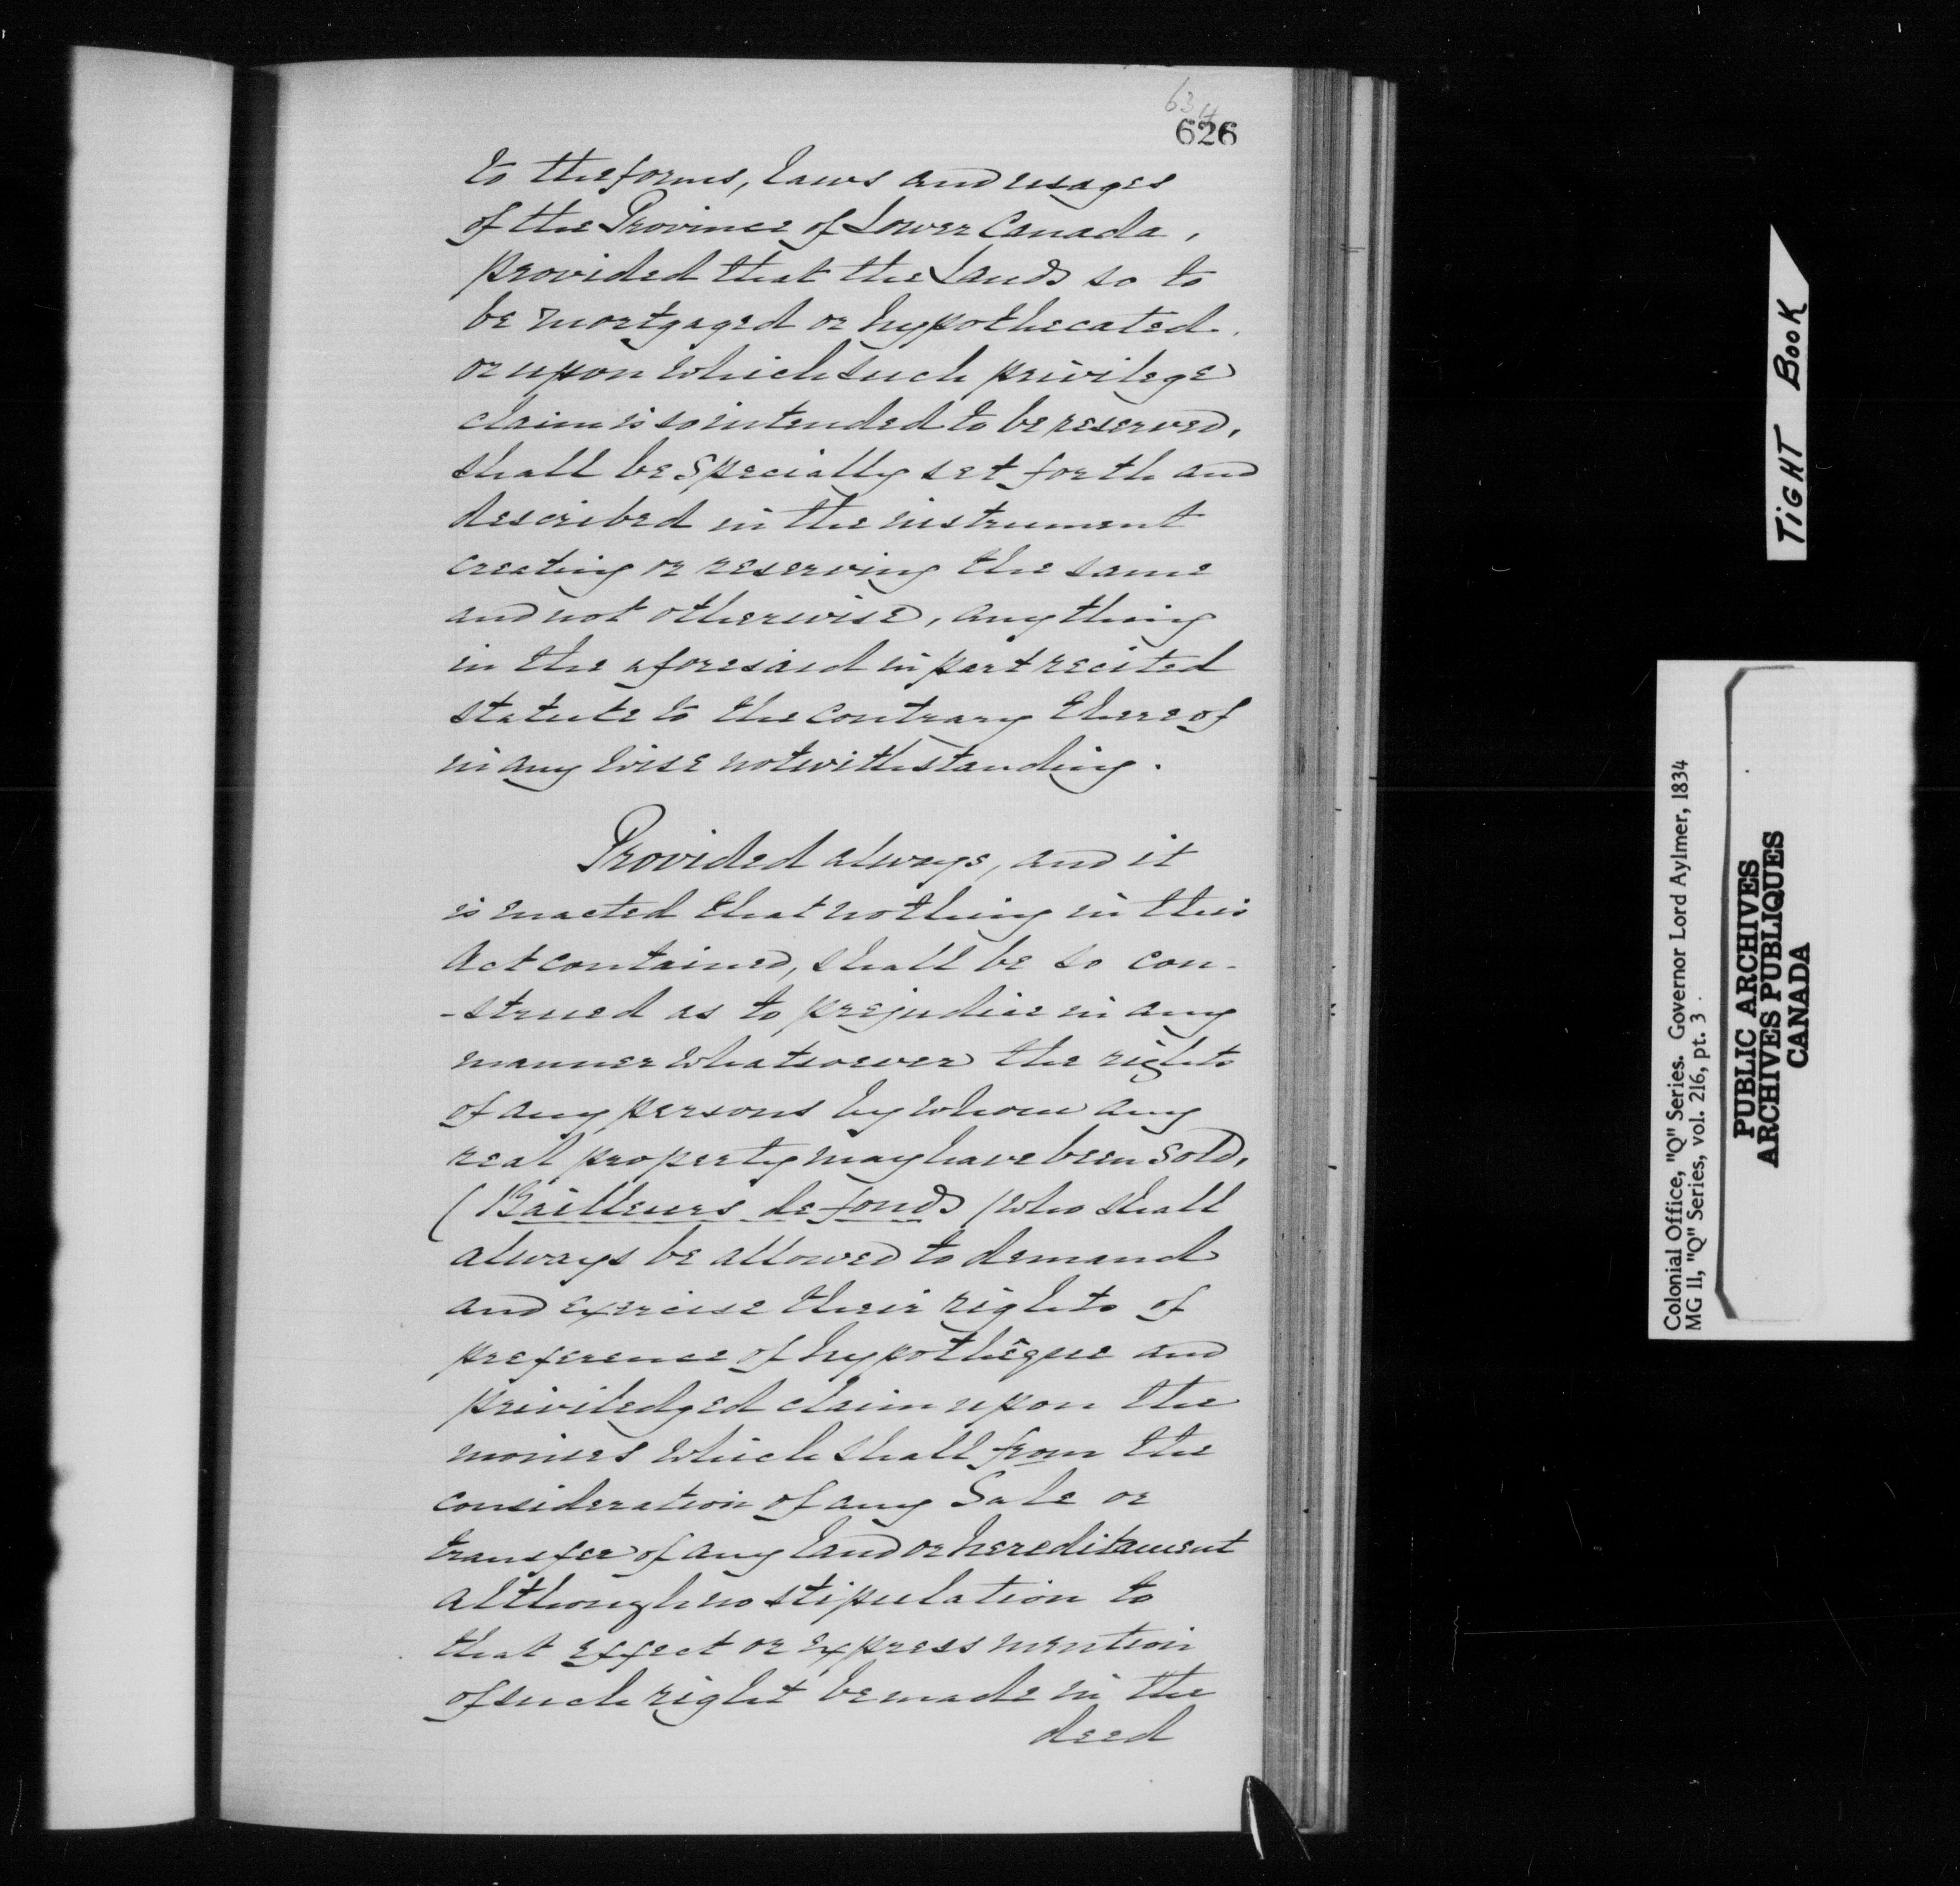 634
626
to the forms, laws and usages
of the Province of Lower Canada,
provided that the Lands so to
be mortgaged or hypothecated.
or upon which such privilege
claim is so intended to be reserved,
shall be specially set forth and
described in the instrument
creating or reserving the same
and not otherwise, any thing
in the aforesaid in part recited
statute to the contrary thereof
in any wise notwithstanding.
Provided always, and it
is enacted that nothing in this
Act contained, shall be so con-
-strued as to prejudice in any
manner whatsoever the rights
of any persons by whom any
real property may have been sold,
(Bailleurs de fonds) who shall
always be allowed to demand
and exercise their rights of
preference of hypothèque and
priviledged claim upon the
monies which shall from the
consideration of any Sale or
transfer of any land or hereditament
although no stipulation to
that effect or express mention
of such right be made in the
deed
TiGHT BOOK
Colonial Office, "Q" Series. Governor Lord Aylmer, 1834
MG 11, "Q" Series, vol. 216, pt. 3.
PUBLIC ARCHIVES
ARCHIVES PUBLIQUES
CANADA